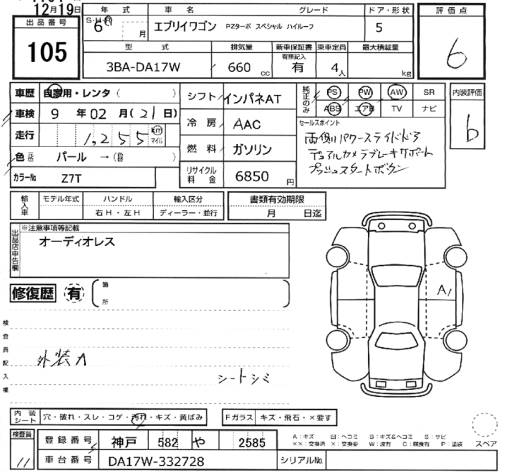 12月19日
出品番号
105
年式 車名 グレード ドア・形状
S・H・R 6 年 月 エブリイワゴン PZターボ スペシャル ハイルーフ 5
型式 排気量 新車保証書 乗車定員 最大積載量
有無記入
3BA-DA17W 660 cc 有 4人 kg
評価点
6
車歴 自家用・レンタ( )
車検 9年 02月(21日)
走行 1,255
マイル
色 パール →( )
カラーNo Z7T
シフト インパネAT
冷房 AAC
燃料 ガソリン
リサイクル料金 6850 円
純正のみ
PS PW AW SR
ABS エアB TV ナビ
セールスポイント
両側パワースライドドア
デュアルカメラブレーキサポート
プッシュスタートボタン
内装評価
輸入車 モデル年式 ハンドル 輸入区分 書類有効期限
右H・左H ディーラー・並行 月 日迄
出品店申告欄
※注意事項等記載
オーディオレス
修復歴 有 ( 箇所 )
検査員記入欄
外装A
シートシミ
A1
内装シート 穴・破れ・スレ・コゲ・汚れ・キズ・黄ばみ Fガラス キズ・飛石・×要す
検査員
11
登録番号 神戸 582 や 2585
車台番号 DA17W-332728 シリアルNo.
スペア